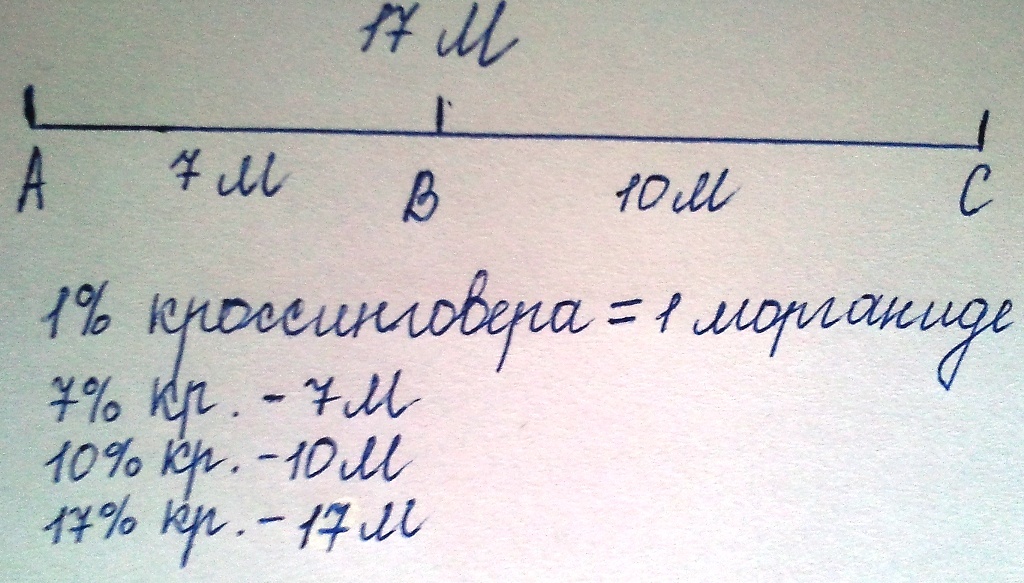 17 М
A 7 М B 10 М C
1% кроссинговера = 1 морганиде
7% кр. - 7 М
10% кр. - 10 М
17% кр. - 17 М